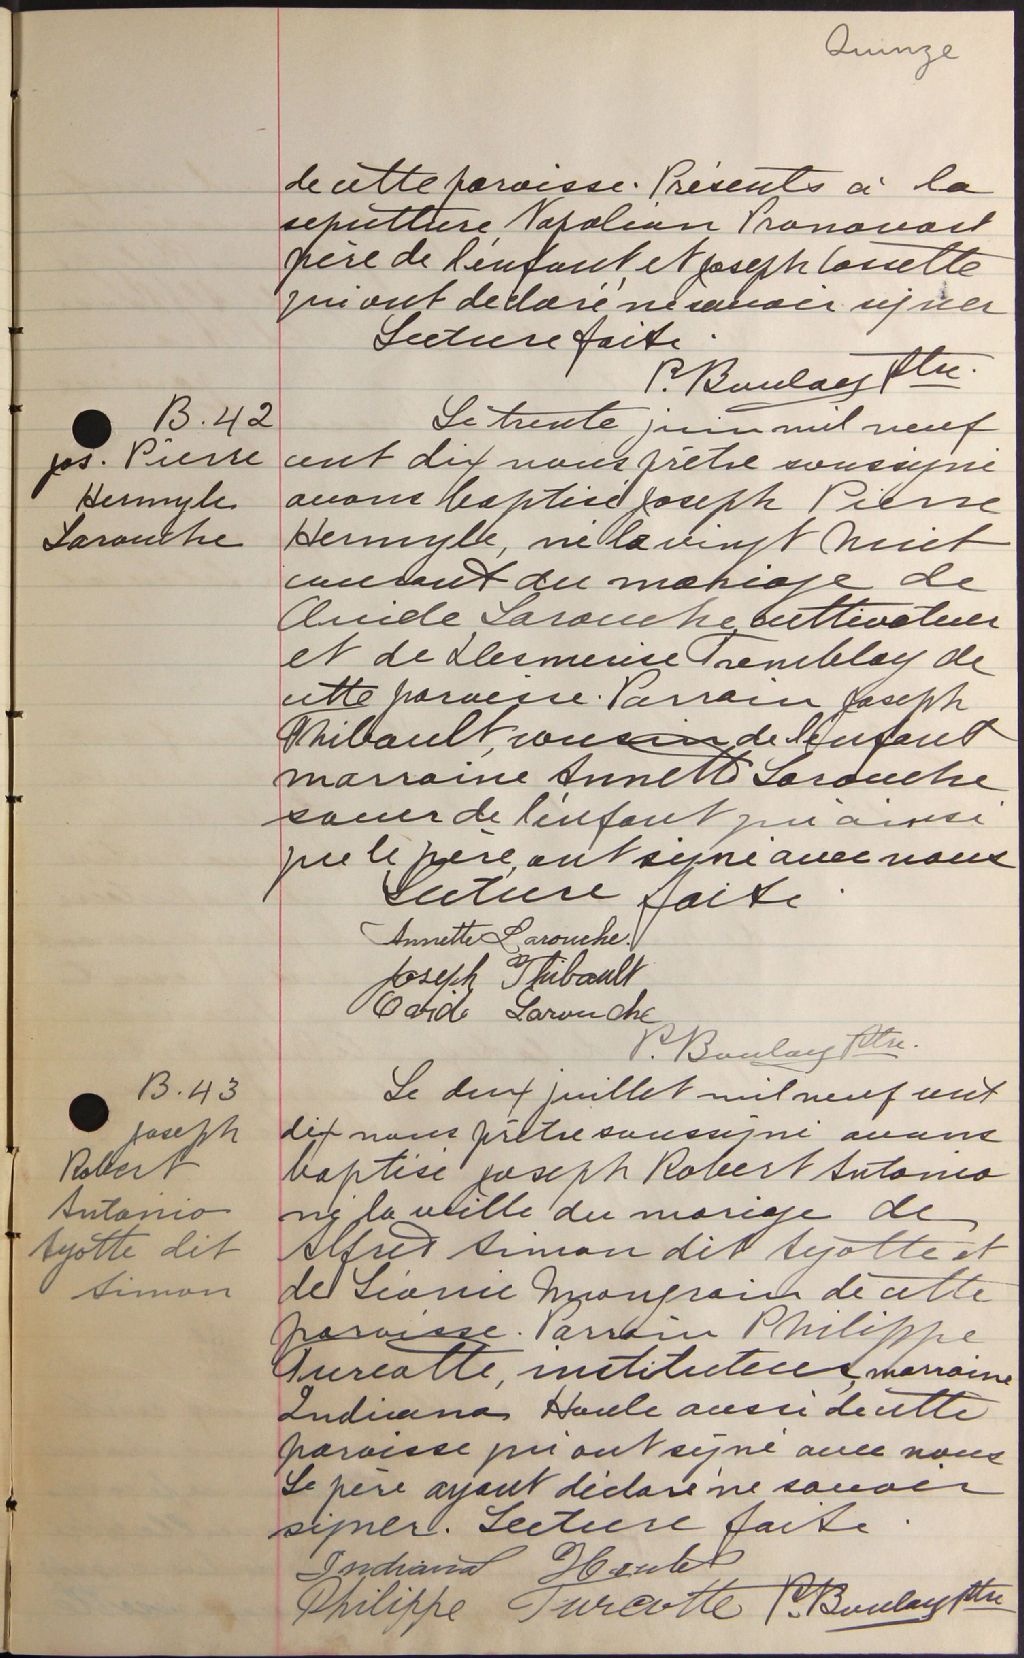 Quinze
de cette paroisse. Présents à la
sepulture Napoléon Pronovost
père de l'enfant et Joseph Cossette
qui ont declaré ne savoir signer
Lecture faite.
P. Boulay Ptre.
B. 42
Jos. Pierre
Hermyle
Larouche
Le trente juin mil neuf
cent dix nous prêtre soussigné
avons baptisé Joseph Pierre
Hermyle, né le vingt huit
courant du mariage de
Ovide Larouche cultivateur
et de Desmerise Tremblay de
cette paroisse. Parrain Joseph
Thibault, cousin de l'enfant
marraine Annette Larouche
soeur de l'enfant qui ainsi
que le père ont signé avec nous
Lecture faite.
Annette Larouche.
Joseph Thibault
Ovide Larouche
P. Boulay Ptre.
B. 43
Joseph
Robert
Antonio
Ayotte dit
Simon
Le deux juillet mil neuf cent
dix nous prêtre soussigné avons
baptisé Joseph Robert Antonio
né la veille du mariage de
Alfred Simon dit Ayotte et
de Léonie Mongrain de cette
paroisse. Parrain Philippe
Turcotte, instituteur, marraine
Indiana Houle aussi de cette
paroisse qui ont signé avec nous
Le père ayant déclaré ne savoir
signer. Lecture faite.
Indiana Houle
Philippe Turcotte P. Boulay Ptre